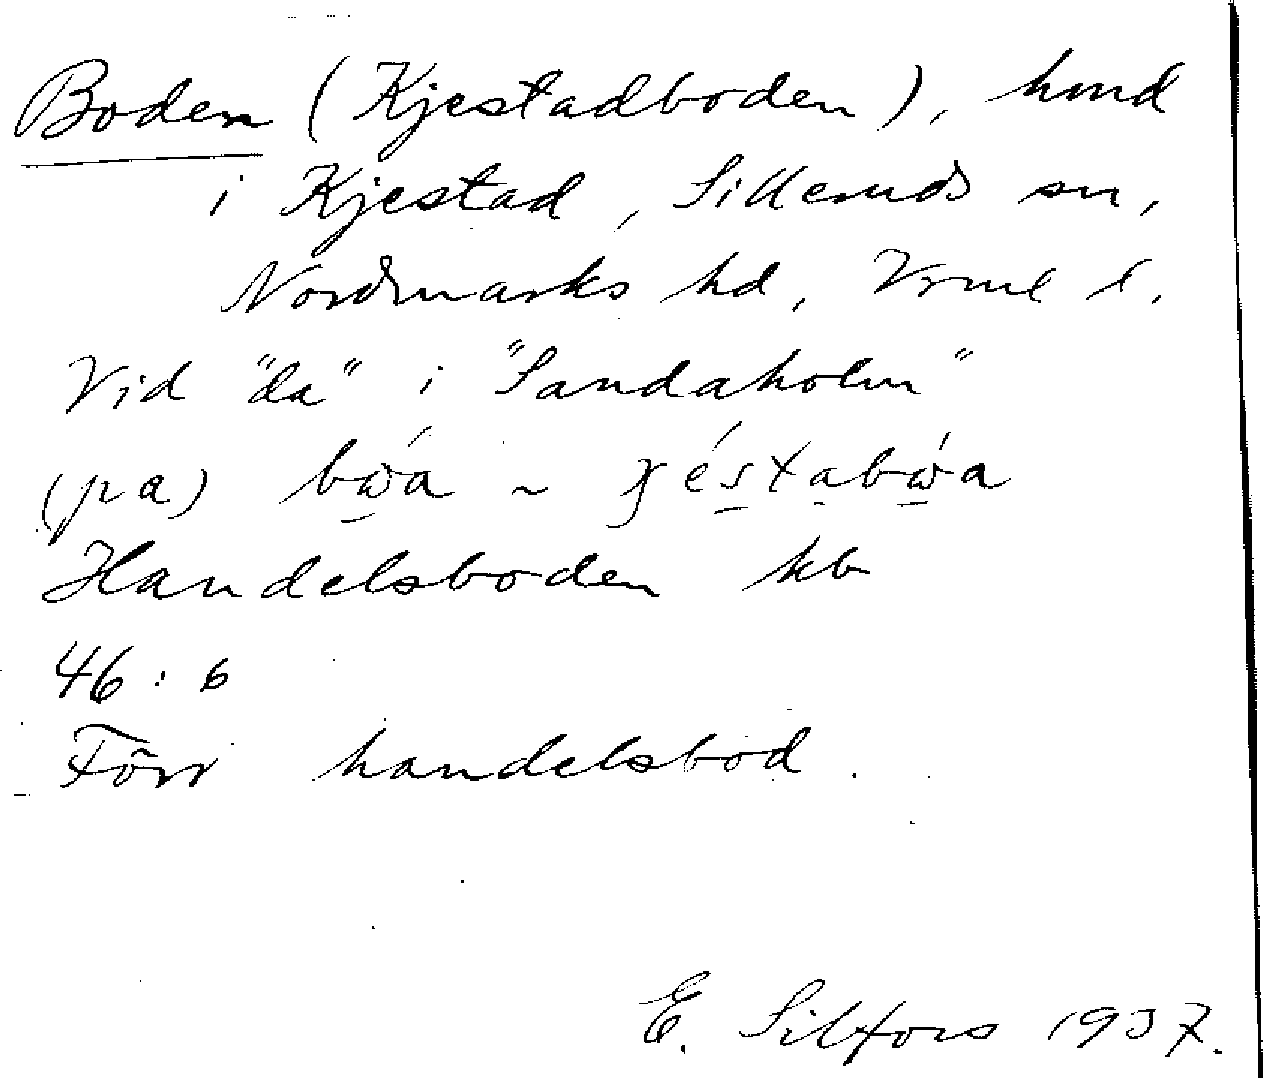 Boden (Kjestadboden), hmd
i Kjestad, Silleruds sn,
Nordmarks hd, Vrml l.
Vid "da" i "Sandaholm"
(pa) bώ̱a ~ ɣés̱ta̱bώ̱a
Handelsboden kb
46:6
Förr handelsbod.
E. Silfors 1937.